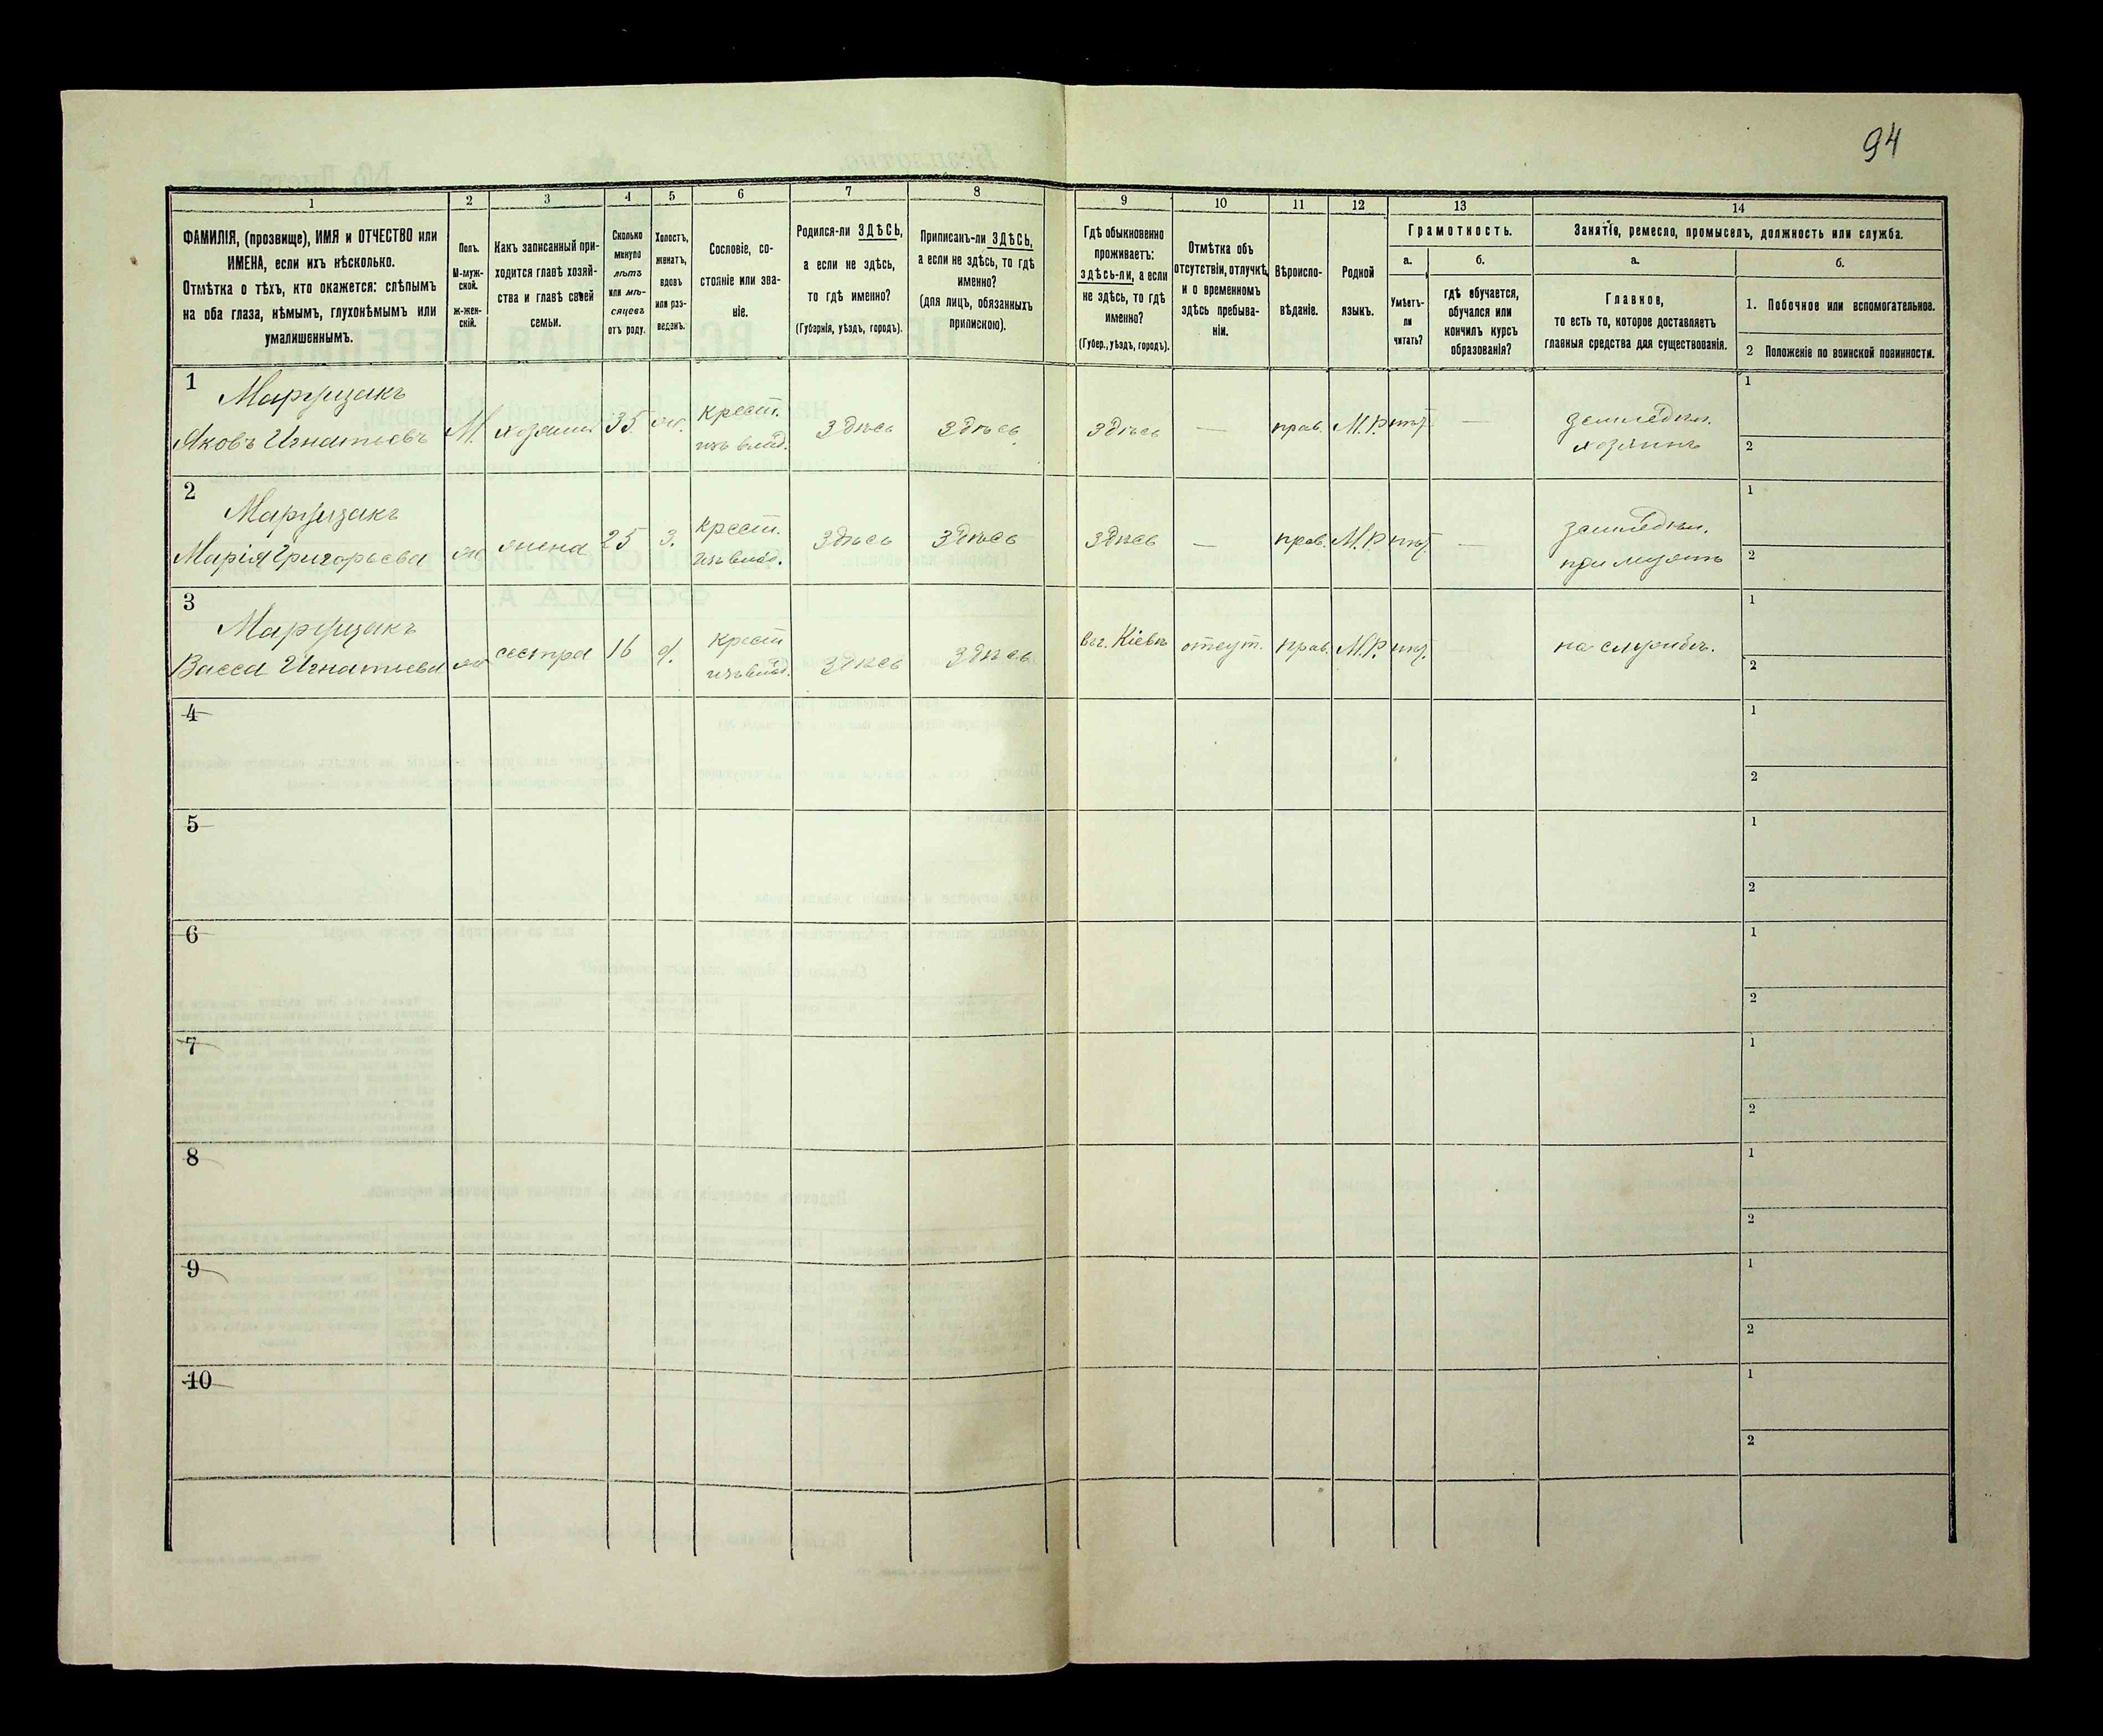 94
1
2
3
4
5
6
7
8
9
10
11
12
13
14
ФАМИЛІЯ, (прозвище), ИМЯ и ОТЧЕСТВО или
ИМЕНА, если ихъ нѣсколько.
Отмѣтка о тѣхъ, кто окажется: слѣпымъ
на оба глаза, нѣмымъ, глухонѣмымъ или
умалишеннымъ.
Полъ.
М-муж-
ской.
Ж-жен-
скій.
Какъ записанный при-
ходится главѣ хозяй-
ства и главѣ своей
семьи.
Сколько
минуло
лѣтъ
или мѣ-
сяцевъ
отъ роду.
Холостъ,
женатъ,
вдовъ
или раз-
веденъ.
Сословіе, со-
стояніе или зва-
ніе.
Родился-ли ЗДѢСЬ,
а если не здѣсь,
то гдѣ именно?
(Губернія, уѣздъ, городъ).
Приписанъ-ли ЗДѢСЬ,
а если не здѣсь, то гдѣ
именно?
(для лицъ, обязанныхъ
припискою).
Гдѣ обыкновенно
проживаетъ:
здѣсь-ли, а если
не здѣсь, то гдѣ
именно?
(Губер., уѣздъ, городъ).
Отмѣтка объ
отсутствіи, отлучкѣ
и о временномъ
здѣсь пребыва-
ніи.
Вѣроиспо-
вѣданіе.
Родной
языкъ.
Грамотность.
а.
Умѣетъ-
ли
читать?
б.
гдѣ обучается,
обучался или
кончилъ курсъ
образованія?
Занятіе, ремесло, промыселъ, должность или служба.
а.
Главное,
то есть то, которое доставляетъ
главныя средства для существованія.
б.
1. Побочное или вспомогательное.
2 Положеніе по воинской повинности.
1
Яковъ Игнатьевъ
М.
хозяинъ
35
крест.
изъ влад.
здѣсь
здѣсь
здѣсь
—
прав.
М.Р.
—
земледѣл.
хозяинъ
1
2
2
Марія Григорьева
ж
жена
25
з.
крест.
изъ влад.
здѣсь
здѣсь
здѣсь
—
прав.
М.Р.
—
земледѣл.
при мужѣ
1
2
3
Васса Игнатьева
ж
сестра
16
д.
крест
изъ влад.
здѣсь
здѣсь
въ г. Кіевѣ
отсут.
прав.
М.Р.
—
на службѣ.
1
2
4
1
2
5
1
2
6
1
2
7
1
2
8
1
2
9
1
2
10
1
2